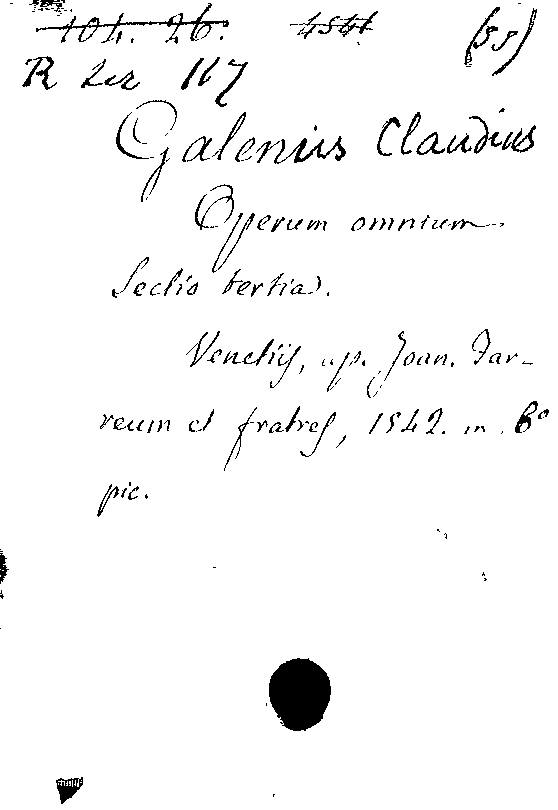 104. 26. 4541 (55)
R Ser 117
Galenius Claudius
Operum omnium
Sectio tertia.
Venetiis, ap. Joan. Far-
reum et fratres, 1542. in 8º
pic.